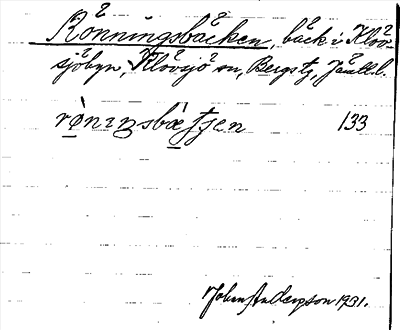 Rönningsbäcken, bäck i Klöv-
sjöbyn, Klövsjö sn, Bergs tg, Jämtl. l.
rø̀nıŋsbæ̀ʃʃen 133
John Anderson 1931.